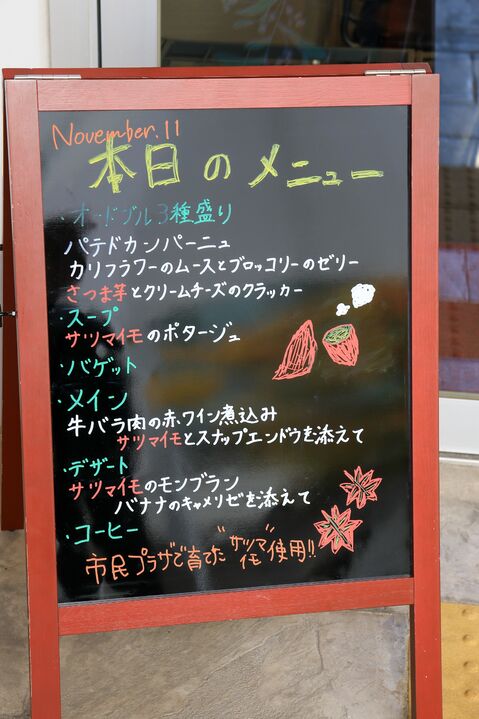 November.11
本日のメニュー
・オードブル3種盛り
パテドカンパーニュ
カリフラワーのムースとブロッコリーのゼリー
さつま芋とクリームチーズのクラッカー
・スープ
サツマイモのポタージュ
・バゲット
・メイン
牛バラ肉の赤ワイン煮込み
サツマイモとスナップエンドウを添えて
・デザート
サツマイモのモンブラン
バナナのキャメリゼを添えて
・コーヒー
市民プラザで育てた"サツマイモ"使用!!